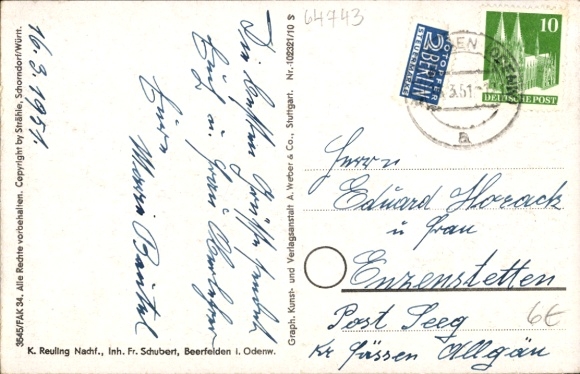 16.3.1951.
Die besten Grüße sendet
Euch u. Frau
Eure
Maria Beutel
3645/FAK 34. Alle Rechte vorbehalten. Copyright by Strähle, Schorndorf/Württ.
K. Reuling Nachf., Inh. Fr. Schubert, Beerfelden i. Odenw.
Graph. Kunst- und Verlagsanstalt A. Weber & Co., Stuttgart. Nr. 102321/10 S
64743
NOTOPFER
2 BERLIN
STEUERMARKE
10
DEUTSCHE POST
3.51
a
Herrn
Eduard Horack
u Frau
Enzenstetten
Post Seeg
Kr Füssen Allgäu
6€